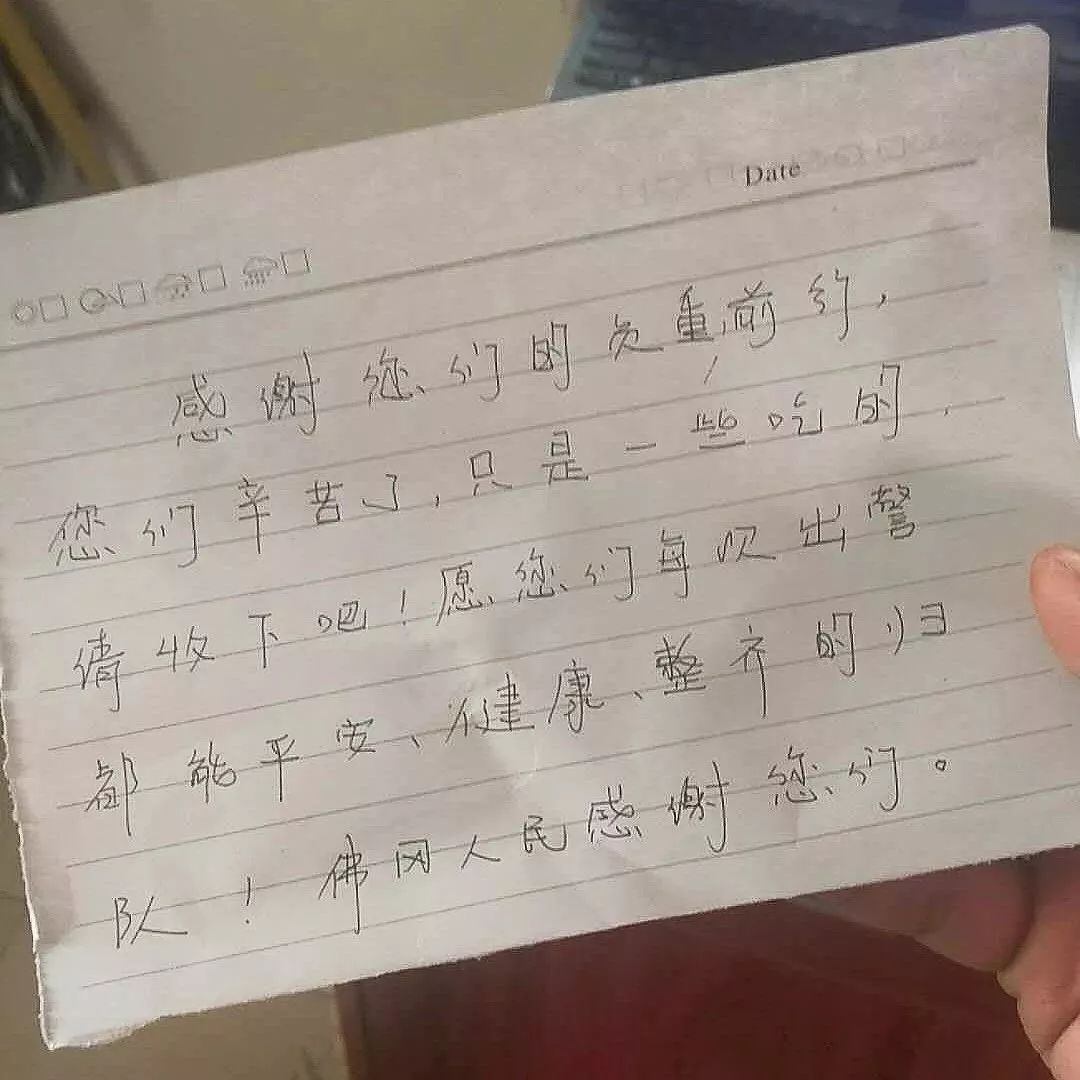 Date
感谢您们的负重前行，
您们辛苦了，只是一些吃的．
请收下吧！愿您们每次出警
都能平安、健康、整齐的归
队！佛冈人民感谢您们。